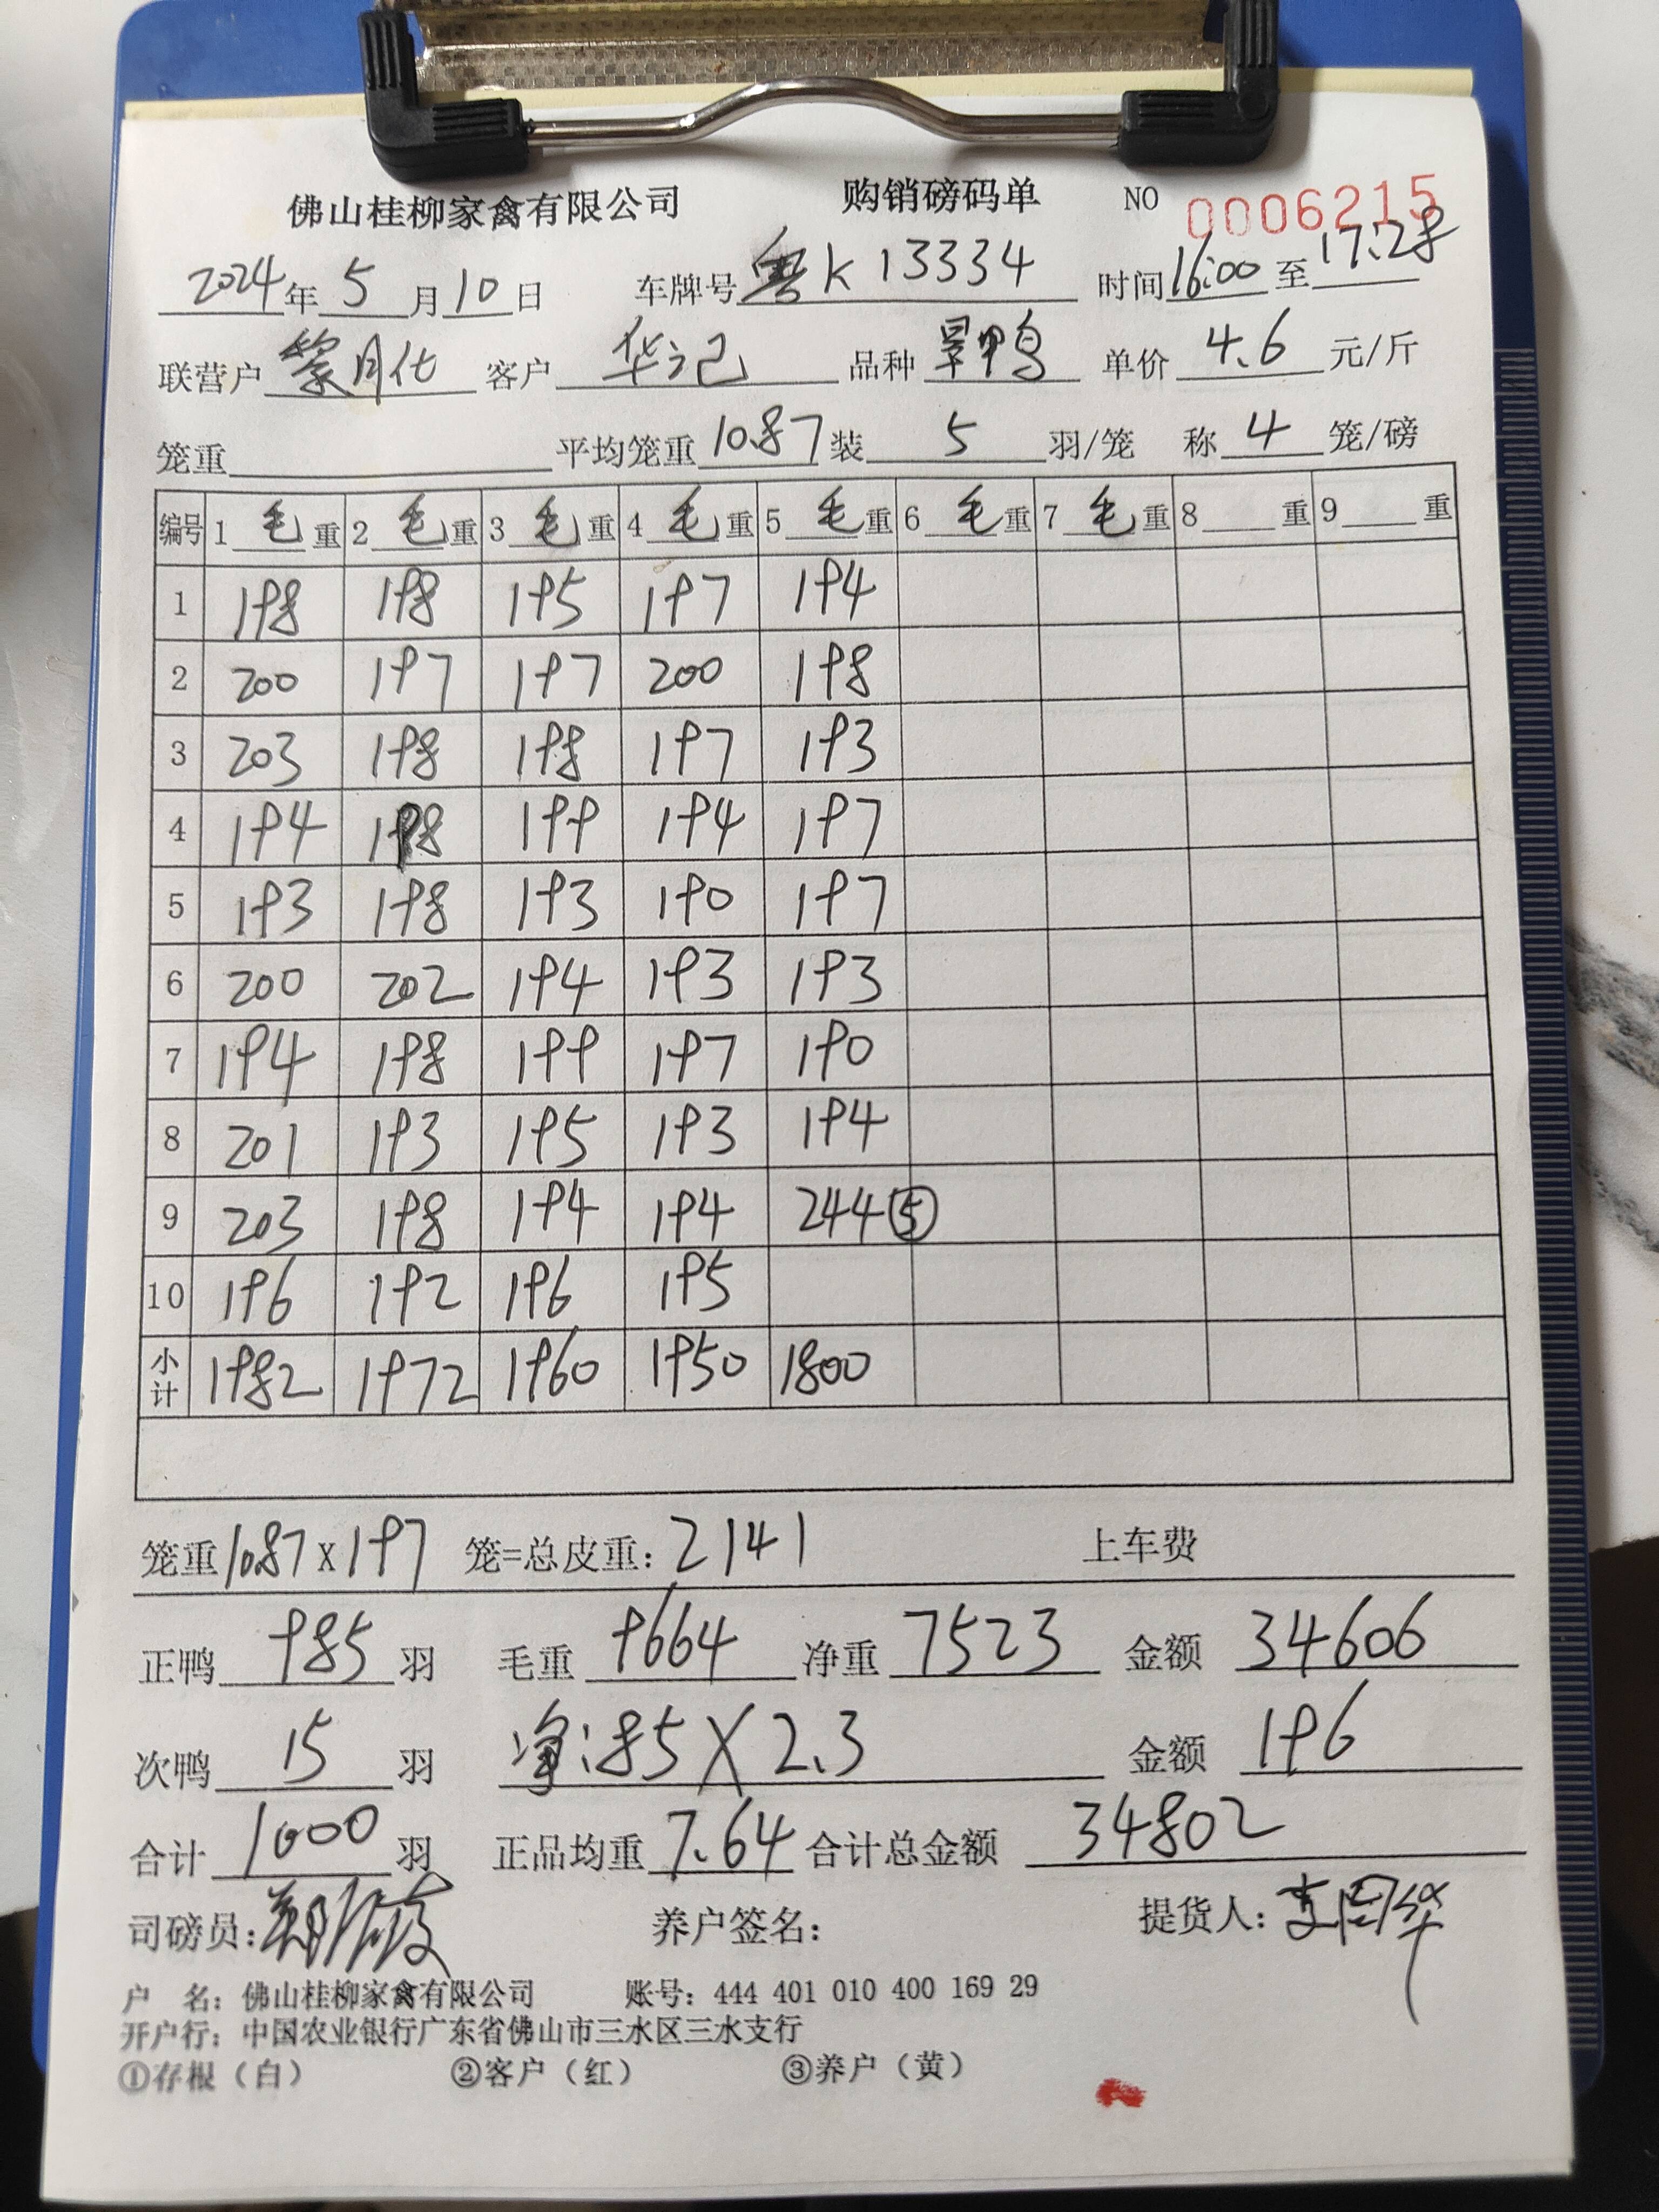 佛山桂柳家禽有限公司 购销磅码单 NO 0006215
2024年5月10日 车牌号 粤K13334 时间16:00至17:28
联营户 黎月化 客户 华记 品种 旱鸭 单价 4.6 元/斤
笼重 平均笼重 10.87 装 5 羽/笼 称 4 笼/磅
编号 1 毛 重 2 毛 重 3 毛 重 4 毛 重 5 毛 重 6 毛 重 7 毛 重 8 重 9 重
1 198 198 195 197 194
2 200 197 197 200 198
3 203 198 198 197 193
4 194 198 199 194 197
5 193 198 193 190 197
6 200 202 194 193 193
7 194 198 199 197 190
8 201 193 195 193 194
9 203 198 194 194 244⑤
10 196 192 196 195
小计 1982 1972 1960 1950 1800
笼重10.87X197 笼=总皮重:2141 上车费
正鸭 985 羽 毛重 9664 净重 7523 金额 34606
次鸭 15 羽 净:85X2.3 金额 196
合计 1000 羽 正品均重 7.64 合计总金额 34802
司磅员: 养户签名: 提货人:
户 名:佛山桂柳家禽有限公司 账号:444 401 010 400 169 29
开户行:中国农业银行广东省佛山市三水区三水支行
①存根(白) ②客户(红) ③养户(黄)